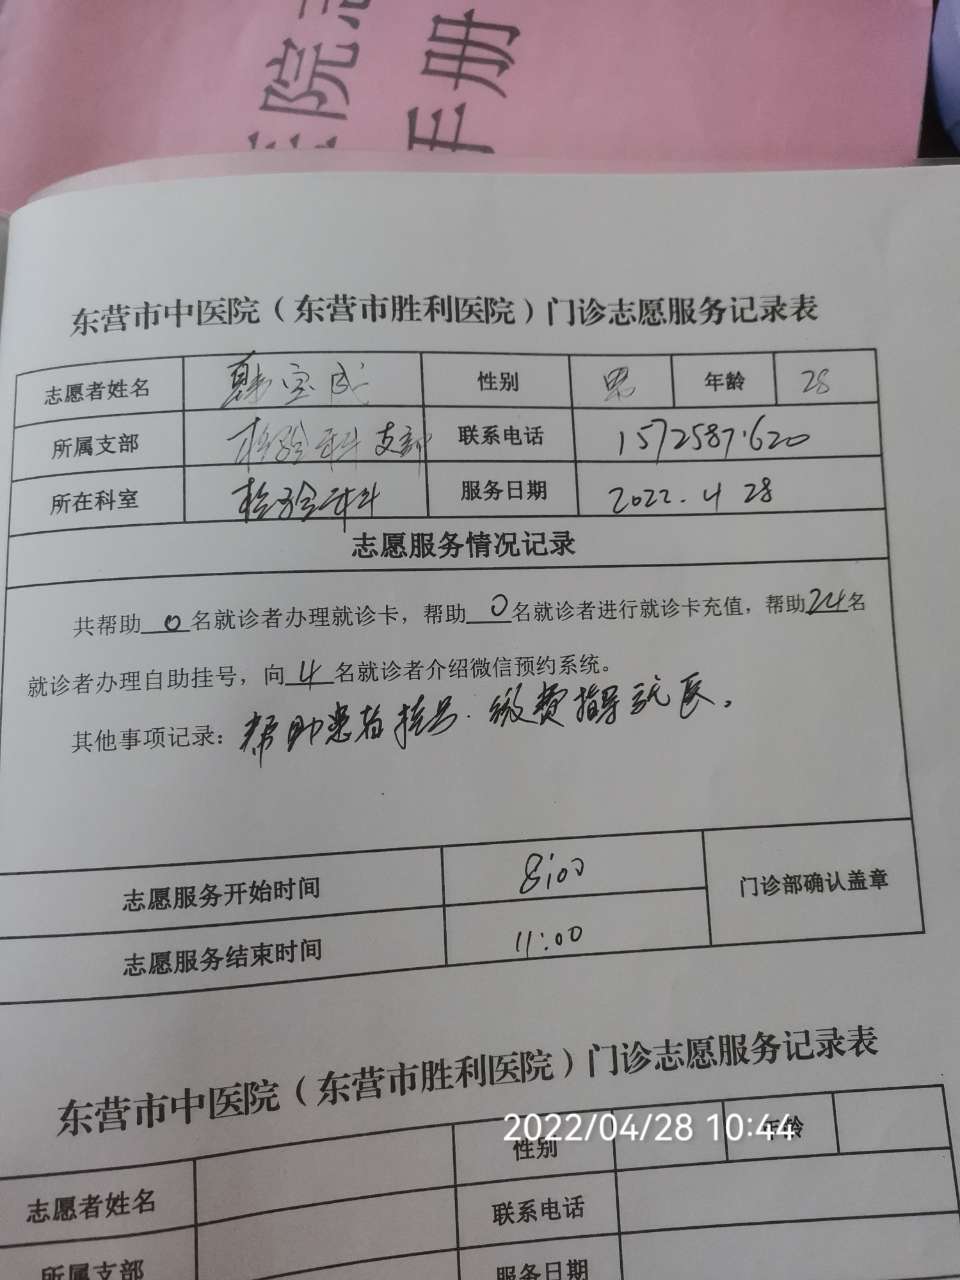 院
手册
东营市中医院（东营市胜利医院）门诊志愿服务记录表
志愿者姓名 韩宝成 性别 男 年龄 28
所属支部 检验科支部 联系电话
所在科室 检验科 服务日期 2022.4 28
志愿服务情况记录
共帮助0名就诊者办理就诊卡，帮助0名就诊者进行就诊卡充值，帮助24名
就诊者办理自助挂号，向4名就诊者介绍微信预约系统。
其他事项记录：帮助患者挂号.缴费指导
志愿服务开始时间 8:00 门诊部确认盖章
志愿服务结束时间 11:00
东营市中医院（东营市胜利医院）门诊志愿服务记录表
2022/04/28 10:44
志愿者姓名 性别 年龄
所属支部 联系电话
服务日期